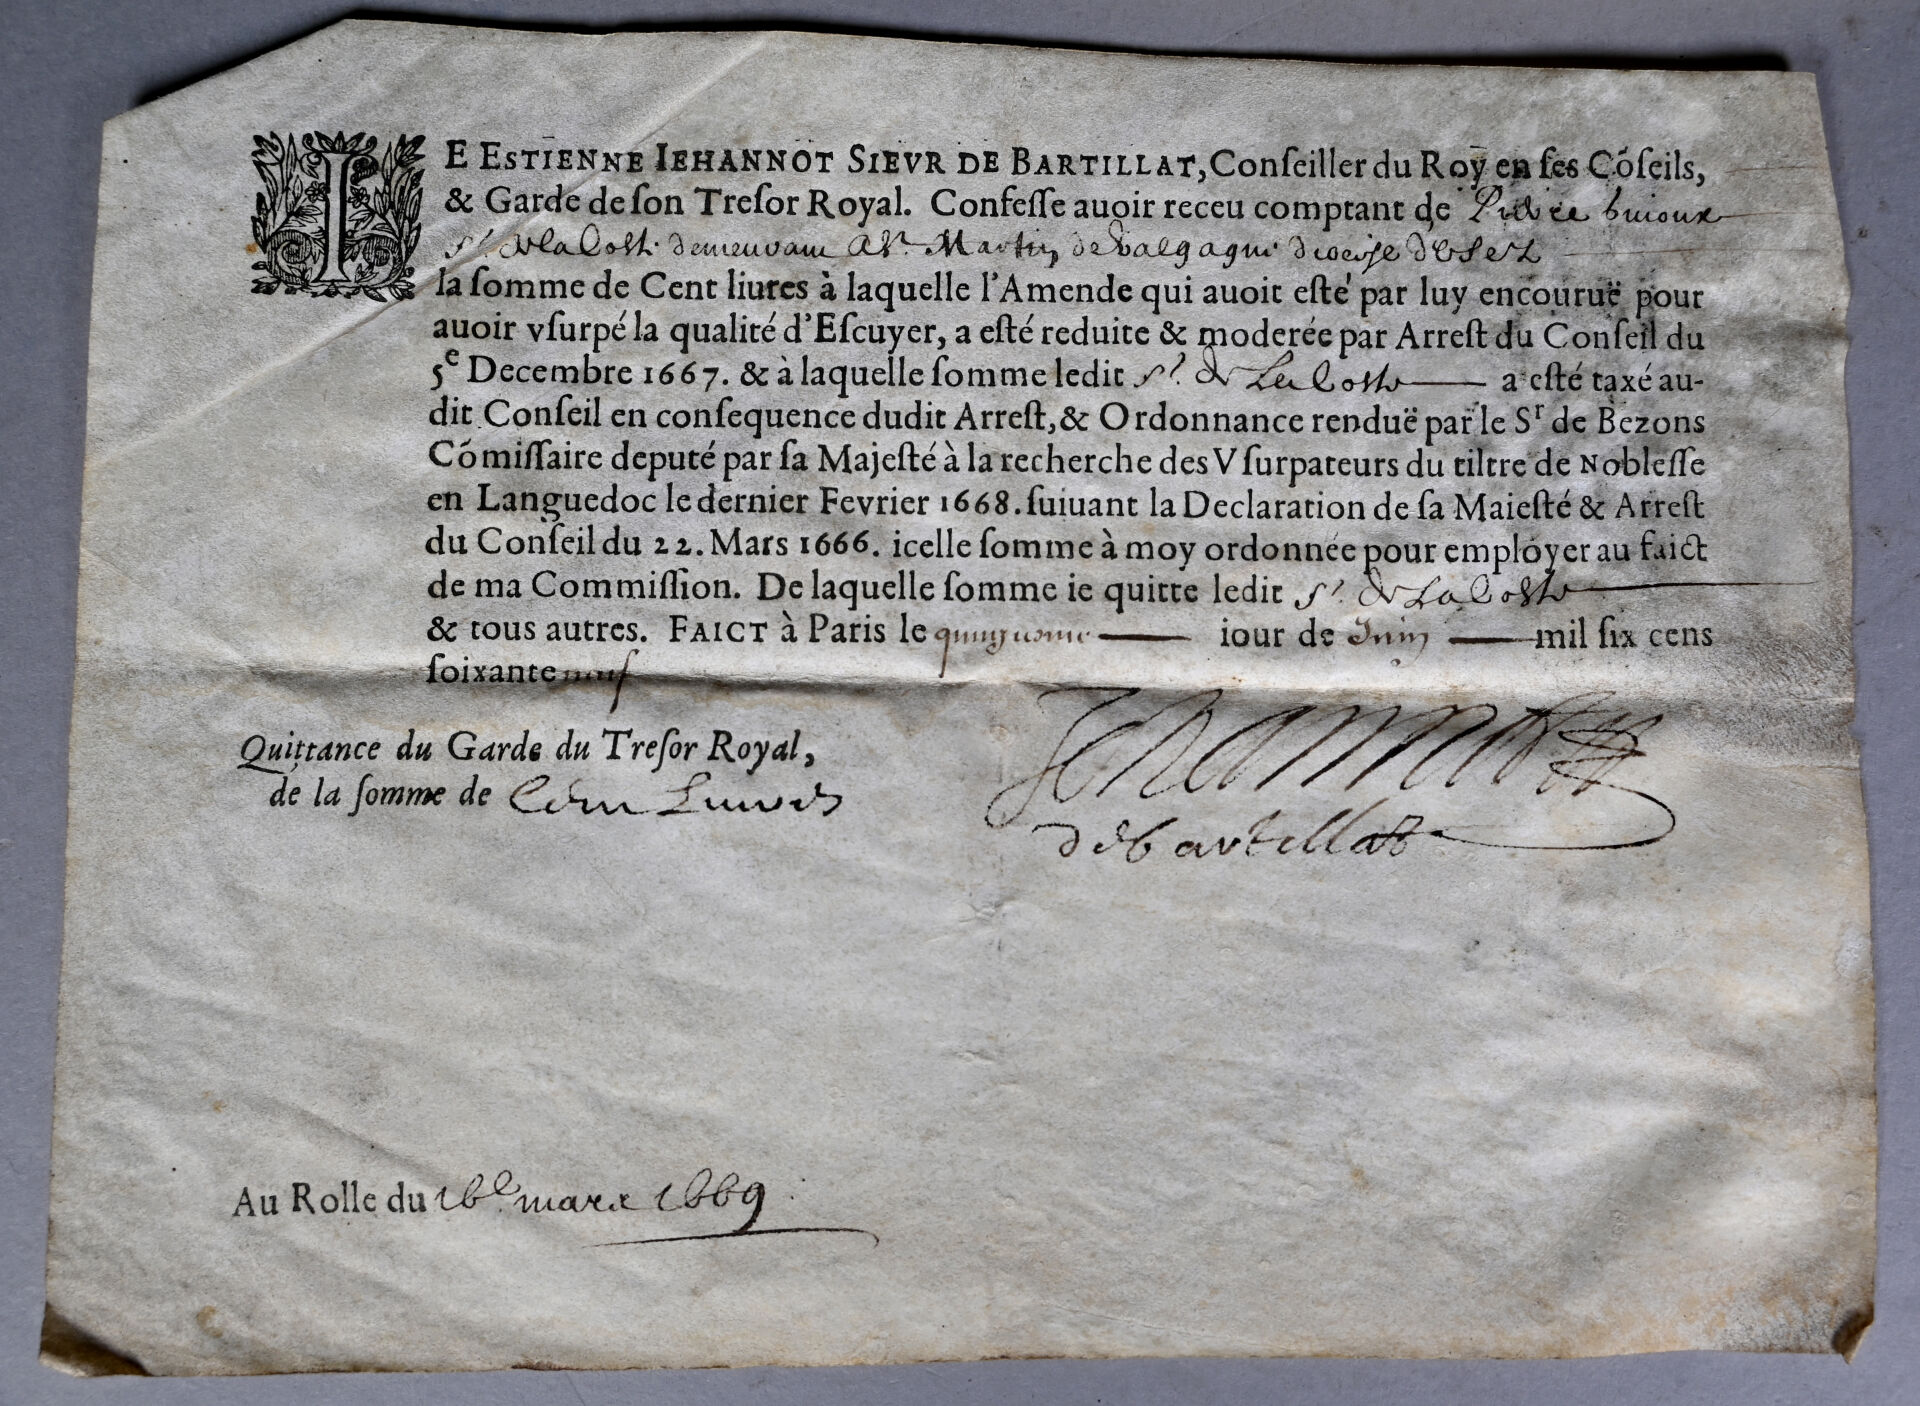 IE ESTIENNE IEHANNOT SIEVR DE BARTILLAT, Conſeiller du Roy en ſes Cõſeils,
& Garde de ſon Treſor Royal. Confeſſe auoir receu comptant de Pierre
Sr. de la Coste demeurant a St. Martin de Valgagne diocese d'Usez
la ſomme de Cent liures à laquelle l'Amende qui auoit eſté par luy encouruë pour
auoir vſurpé la qualité d'Eſcuyer, a eſté reduite & moderée par Arreſt du Conſeil du
5e Decembre 1667. & à laquelle ſomme ledit Sr. de La Coste a eſté taxé au-
dit Conſeil en conſequence dudit Arreſt, & Ordonnance renduë par le Sr de Bezons
Cõmiſſaire deputé par ſa Majeſté à la recherche des Vſurpateurs du tiltre de Nobleſſe
en Languedoc le dernier Fevrier 1668. ſuiuant la Declaration de ſa Maieſté & Arreſt
du Conſeil du 22. Mars 1666. icelle ſomme à moy ordonnée pour employer au faict
de ma Commiſſion. De laquelle ſomme ie quitte ledit Sr. de La Coste
& tous autres. FAICT à Paris le iour de Juin mil ſix cens
ſoixante neuf
Quittance du Garde du Treſor Royal,
de la ſomme de Cent Livres
Jehannot
de Bartillat
Au Rolle du 16e mars 1669